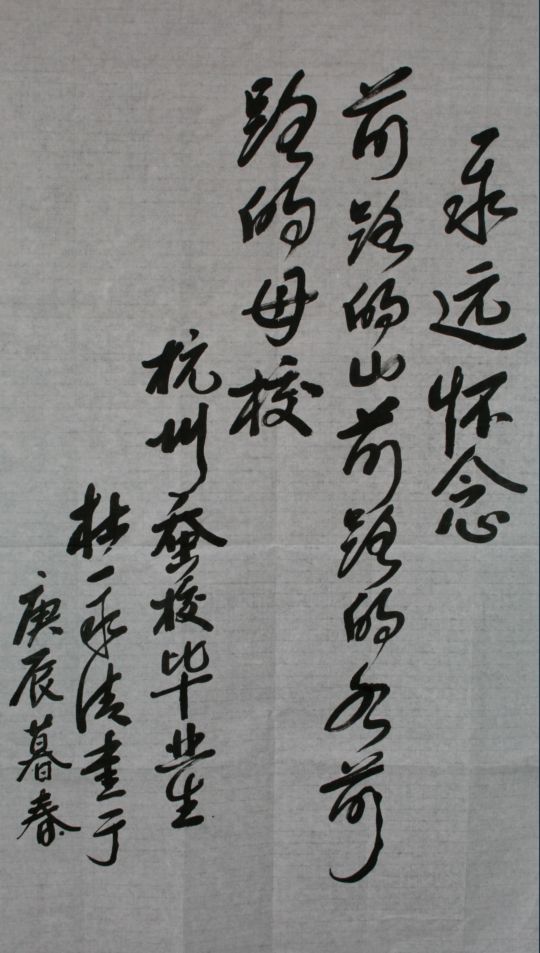 永远怀念
前路的山前路的水前
路的母校
杭州蚕校毕业生
永清书于
庚辰暮春